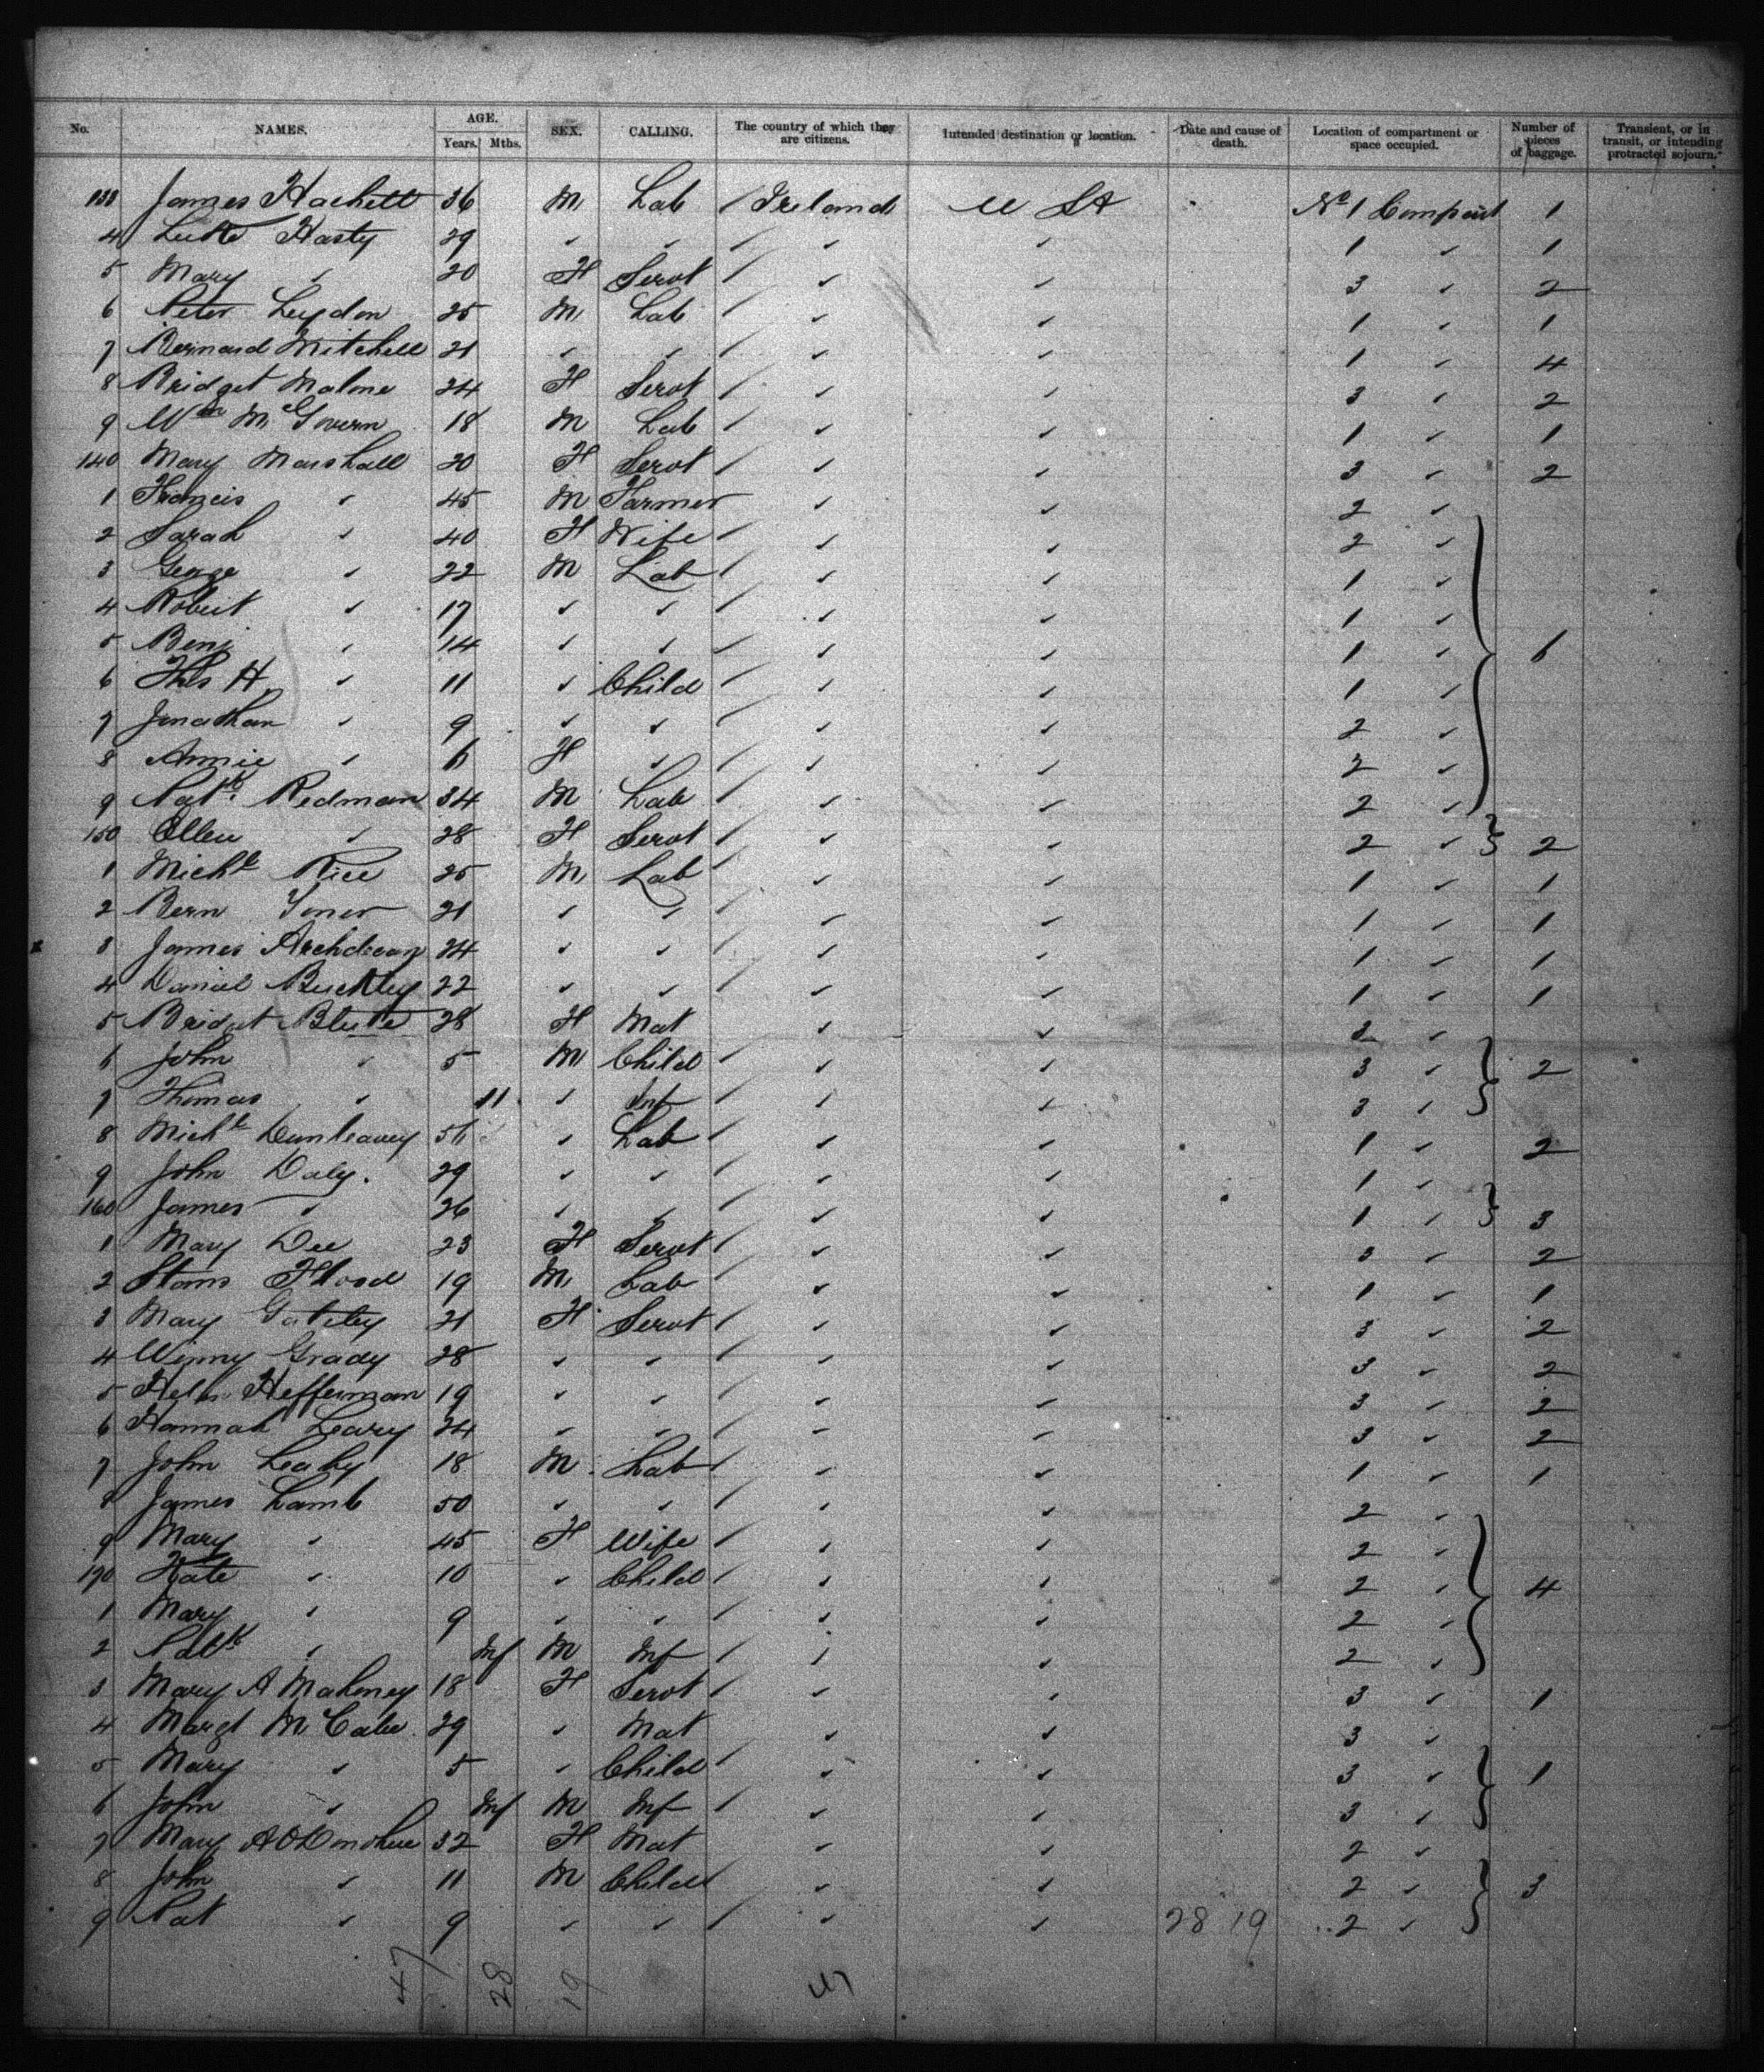 No. NAMES. AGE. Years. Mths. SEX. CALLING. The country of which they are citizens. Intended destination or location. Date and cause of death. Location of compartment or space occupied. Number of pieces of baggage. Transient, or in transit, or intending protracted sojourn.
133 James Hackett 36 M Lab Ireland U St No 1 Compart 1
4 Luke Hasty 29 " " " " 1 " 1
5 Mary " 20 F Servt " " 3 " 2
6 Peter Leydon 25 M Lab " " 1 " 1
7 Bernard Mitchell 21 " " " " 1 " 4
8 Bridget Malone 24 F Servt " " 3 " 2
9 Wm McGovern 18 M Lab " " 1 " 1
140 Mary Marshall 20 F Servt " " 3 " 2
1 Francis " 45 M Farmer " " 2 "
2 Sarah " 40 F Wife " " 2 "
3 George " 22 M Lab " " 1 "
4 Robert " 17 " " " " 1 "
5 Benj " 14 " " " " 1 " 6
6 Thos H " 11 " Child " " 1 "
7 Jonathan " 9 " " " " 2 "
8 Annie " 6 F " " " 2 "
9 Patk Redman 34 M Lab " " 2 "
150 Ellen " 28 F Servt " " 2 " 2
1 Michl Rice 25 M Lab " " 1 " 1
2 Bern 21 " " " " 1 " 1
3 James Archdeacon 24 " " " " 1 " 1
4 Daniel Buckley 22 " " " " 1 " 1
5 Bridget Blute 28 F Mat " " 3 "
6 John " 5 M Child " " 3 " 2
7 Thomas " 11 " Inf " " 3 "
8 Michl Dunleavey 56 " Lab " " 1 " 2
9 John Daly. 29 " " " " 1 "
160 James " 26 " " " " 1 " 3
1 Mary Dee 23 F Servt " " 3 " 2
2 Flood 19 M Lab " " 1 " 1
3 Mary Gateley 21 F Servt " " 3 " 2
4 Winny Grady 28 " " " " 3 " 2
5 Heffernan 19 " " " " 3 " 2
6 Hannah Leary 24 " " " " 3 " 2
7 John Leahy 18 M Lab " " 1 " 1
8 James Lamb 50 " " " " 2 "
9 Mary " 45 F Wife " " 2 "
170 Kate " 10 " Child " " 2 " 4
1 Mary " 9 " " " " 2 "
2 Patk " Inf M Inf " " 2 "
3 Mary A Mahoney 18 F Servt " " 3 " 1
4 Margt McCabe 29 " Mat " " 3 "
5 Mary " 5 " Child " " 3 " 1
6 John " Inf M Inf " " 3 "
7 Mary A O'Donohue 32 F Mat " " 2 "
8 John " 11 M Child " " 2 " 3
9 Pat " 9 " " " " 28 19 2 "
47 28 19